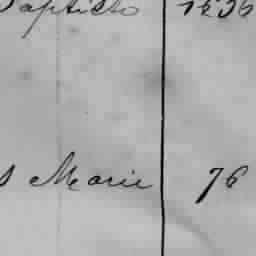 Baptista 1636
s Marie 76